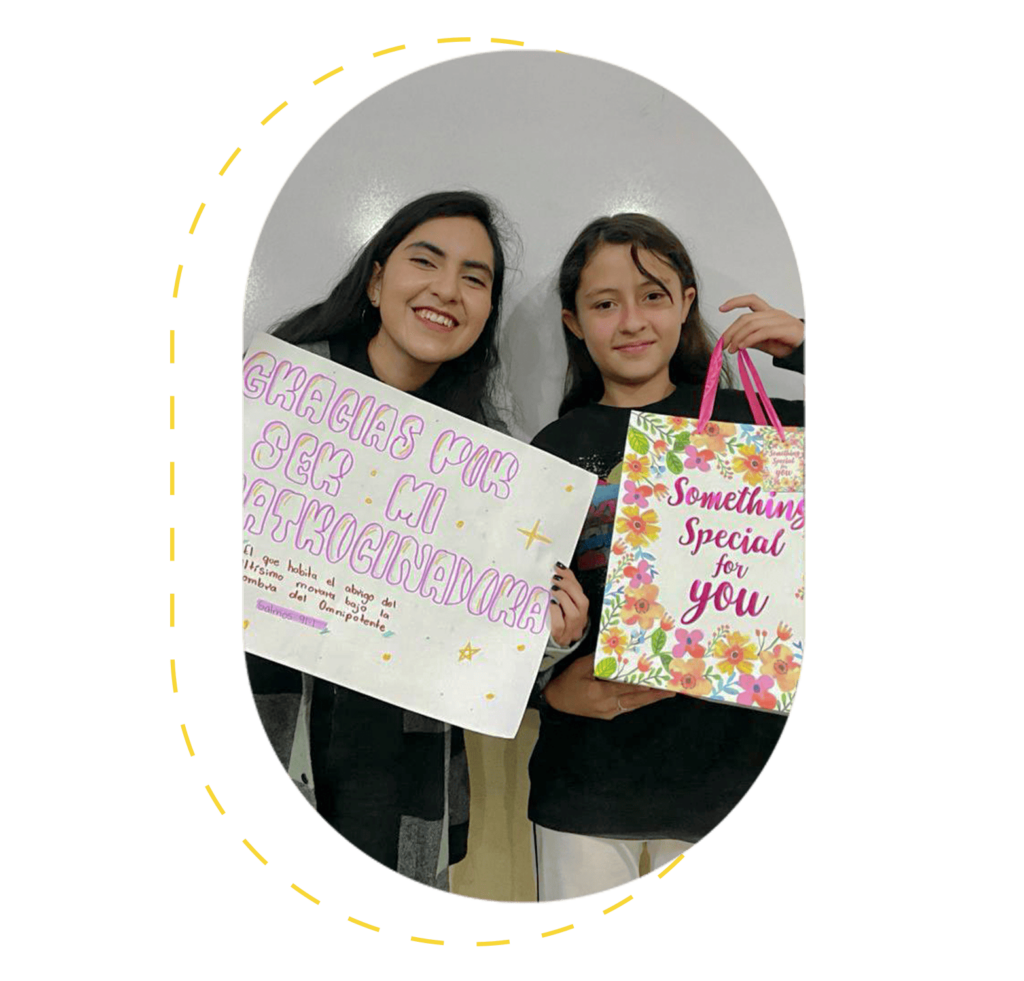 GRACIAS POR
SER MI
PATROCINADORA
El que habita el abrigo del
ltísimo morara bajo la
ombra del Omnipotente
Salmos 91:1
Something
Special
for
you
Something
Special
for
you